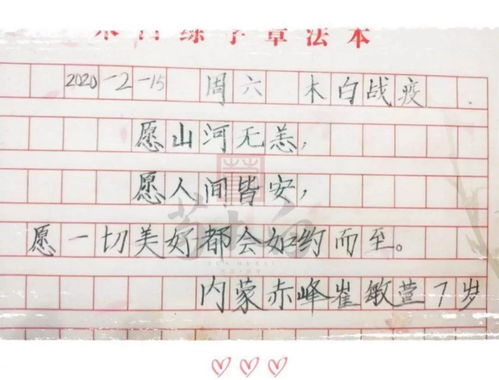 木白练字章法本
2020-2-15 周六 木白战疫
愿山河无恙，
愿人间皆安，
愿一切美好都会如约而至。
内蒙赤峰崔敏萱7岁